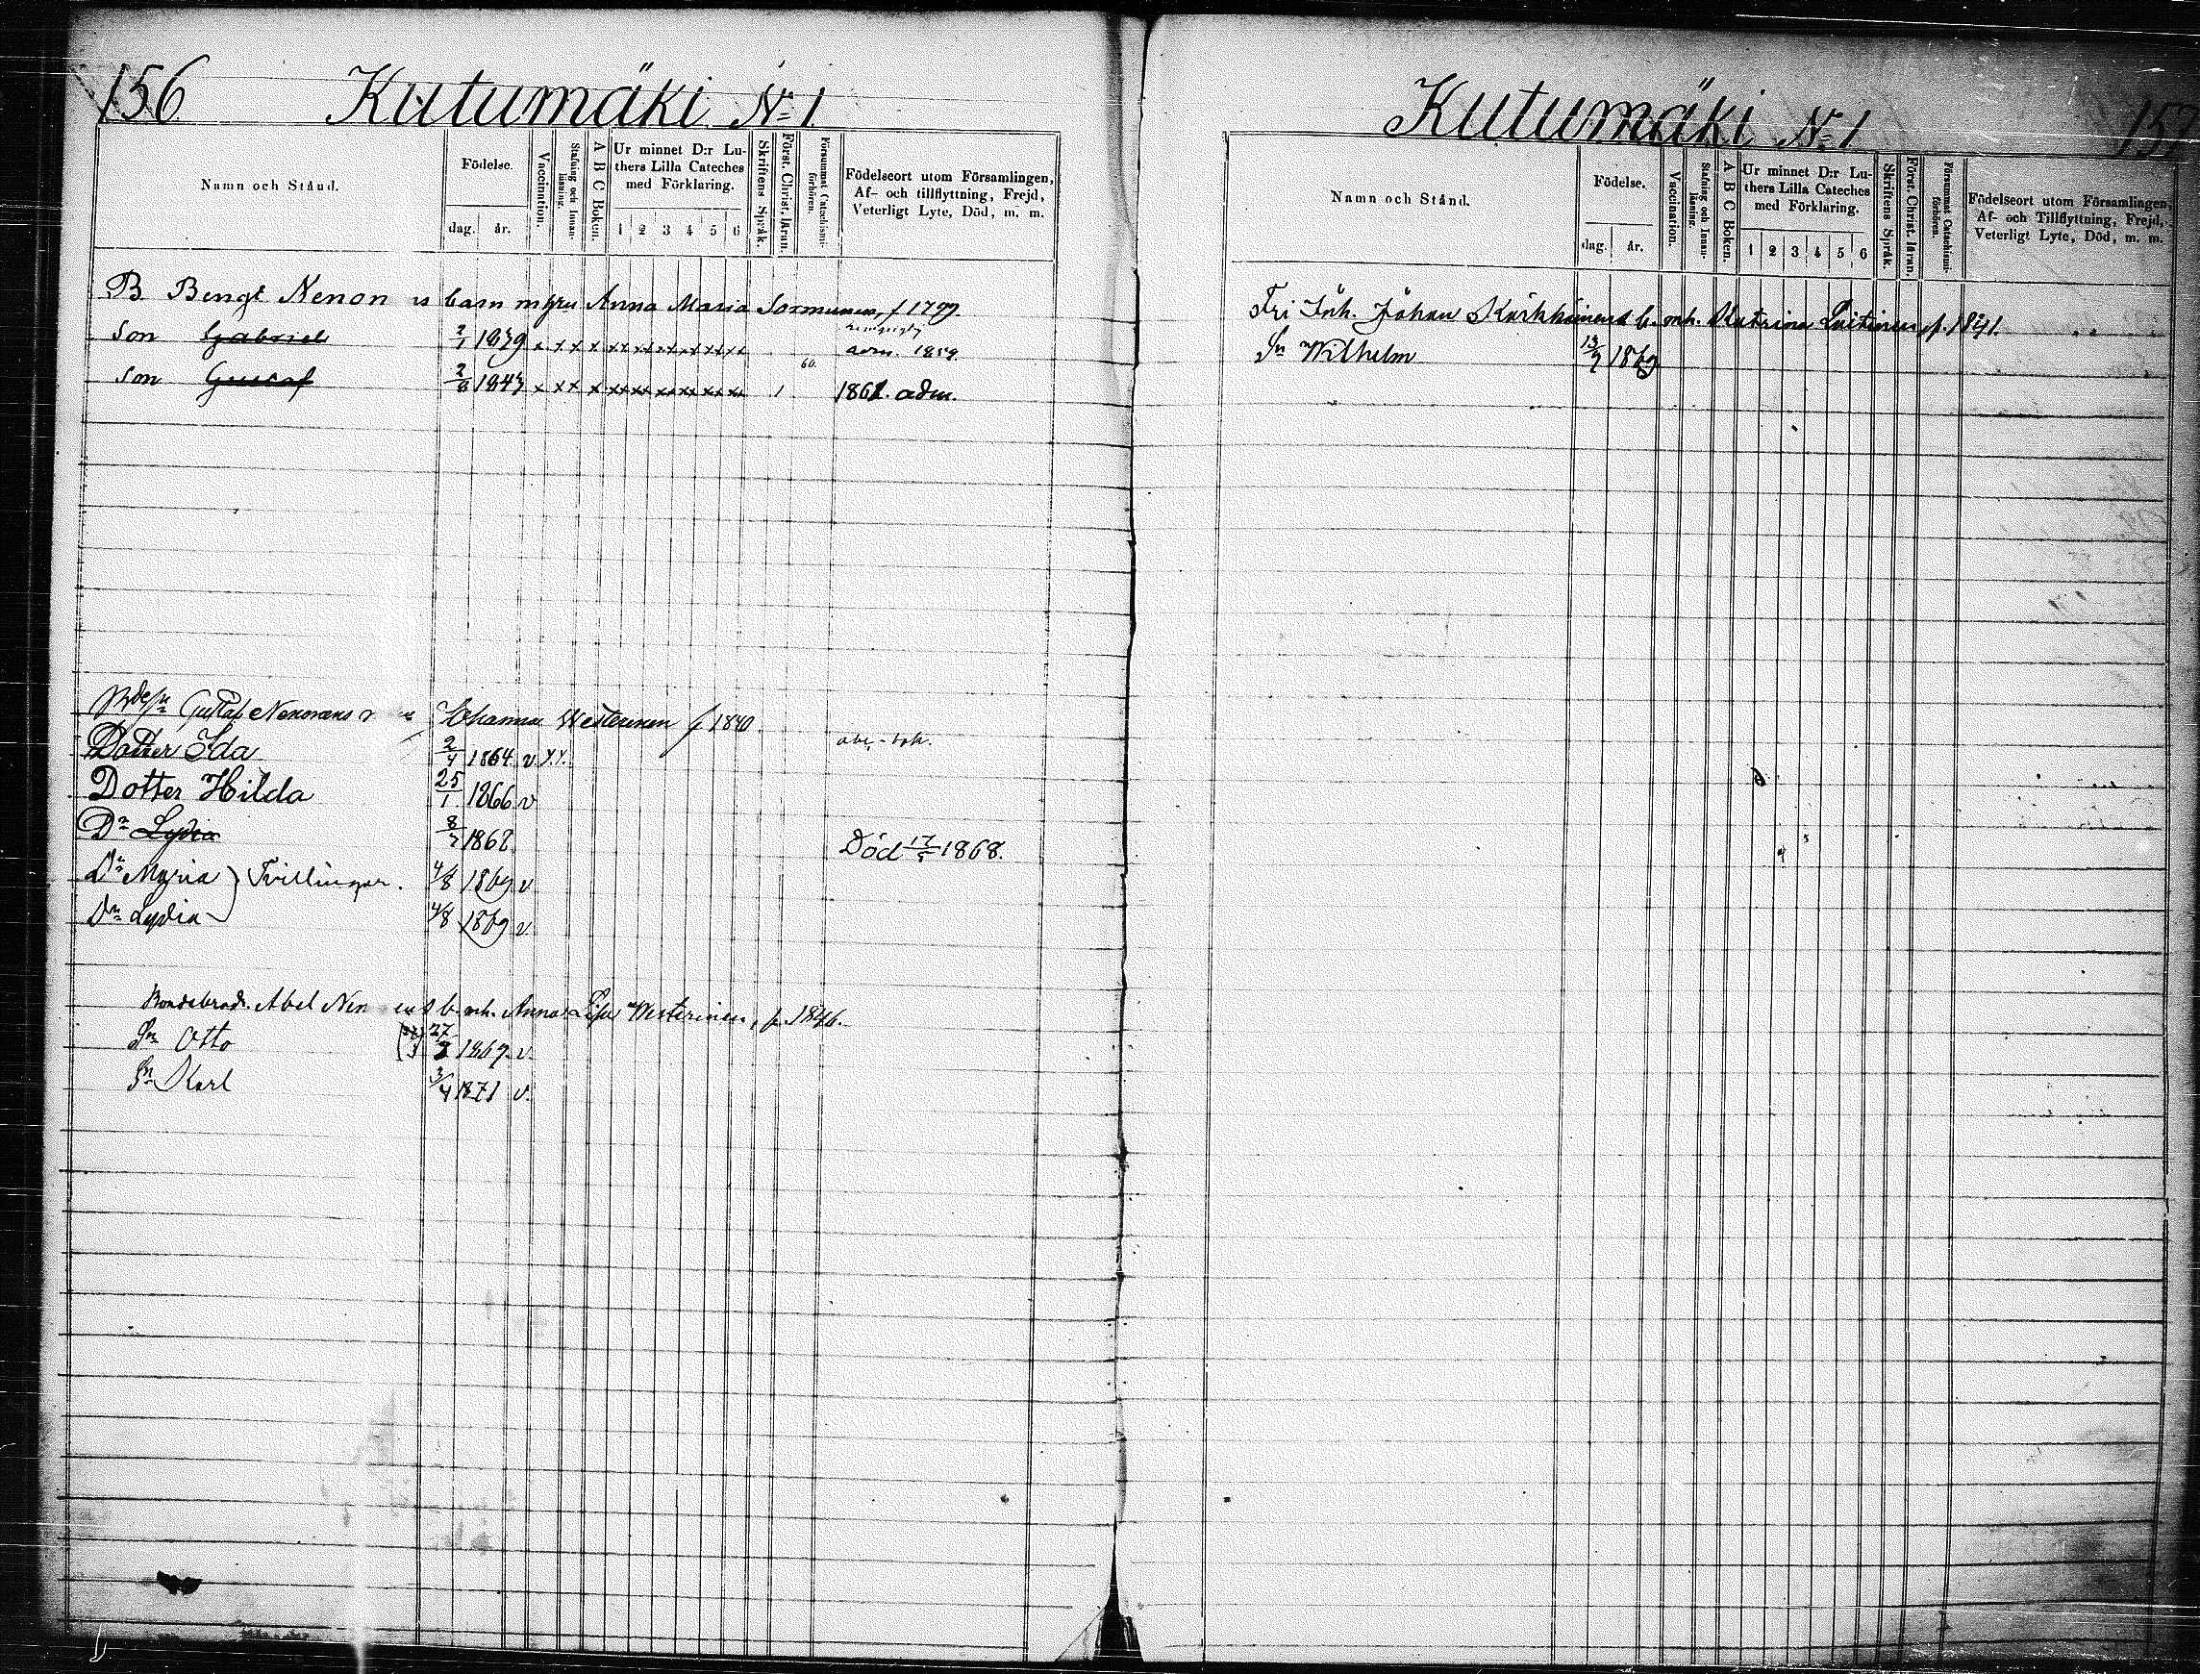 156 Kutumäki No 1
Namn och Stånd.
Födelse.
dag. år.
Vaccination.
Stafning och Innanläsning.
A B C Boken.
Ur minnet D:r Luthers Lilla Cateches med Förklaring.
1 2 3 4 5 6
Skriftens Språk.
Först. Christ. läran.
Försummat Catechismiförhören.
Födelseort utom Församlingen,
Af- och tillflyttning, Frejd,
Veterligt Lyte, Död, m. m.
B. Bengt Nenon s barn m hru Anna Maria Sormunen, f 1799.
Son Gabriel 2/1 1839 x x x x xx xx xx xx xx xx adm. 1859.
60.
Son Gustaf 2/8 1843 x x x x xx xx xx xx xx xx 1 1861. adm.
Gustaf Nenonens Johanna Westerinen f 1840.
Dotter Ida 2/4 1864 v x.x.
Dotter Hilda 25/1 1866 v
Dr Lydia 8/2 1868 Död 17/5 1868.
Dr Maria } Tvillingar. 4/8 1869 v
Dr Lydia 4/8 1869 v
Bondebrodr. Abel Nen ens b. mh. Anna Lisa Westerinen, f. 1846.
Sn Otto 27/2 1867. v.
Sn Karl 3/4 1871 v.
Kutumäki No 1 157
Namn och Stånd.
Födelse.
dag. år.
Vaccination.
Stafning och Innanläsning.
A B C Boken.
Ur minnet D:r Luthers Lilla Cateches med Förklaring.
1 2 3 4 5 6
Skriftens Språk.
Först. Christ. läran.
Försummat Catechismiförhören.
Födelseort utom Församlingen,
Af- och Tillflyttning, Frejd,
Veterligt Lyte, Död, m. m.
Fri Inh. Johan Karhhinens b. mh. Katrina f. 1841.
Sn Wilhelm 13/9 1869